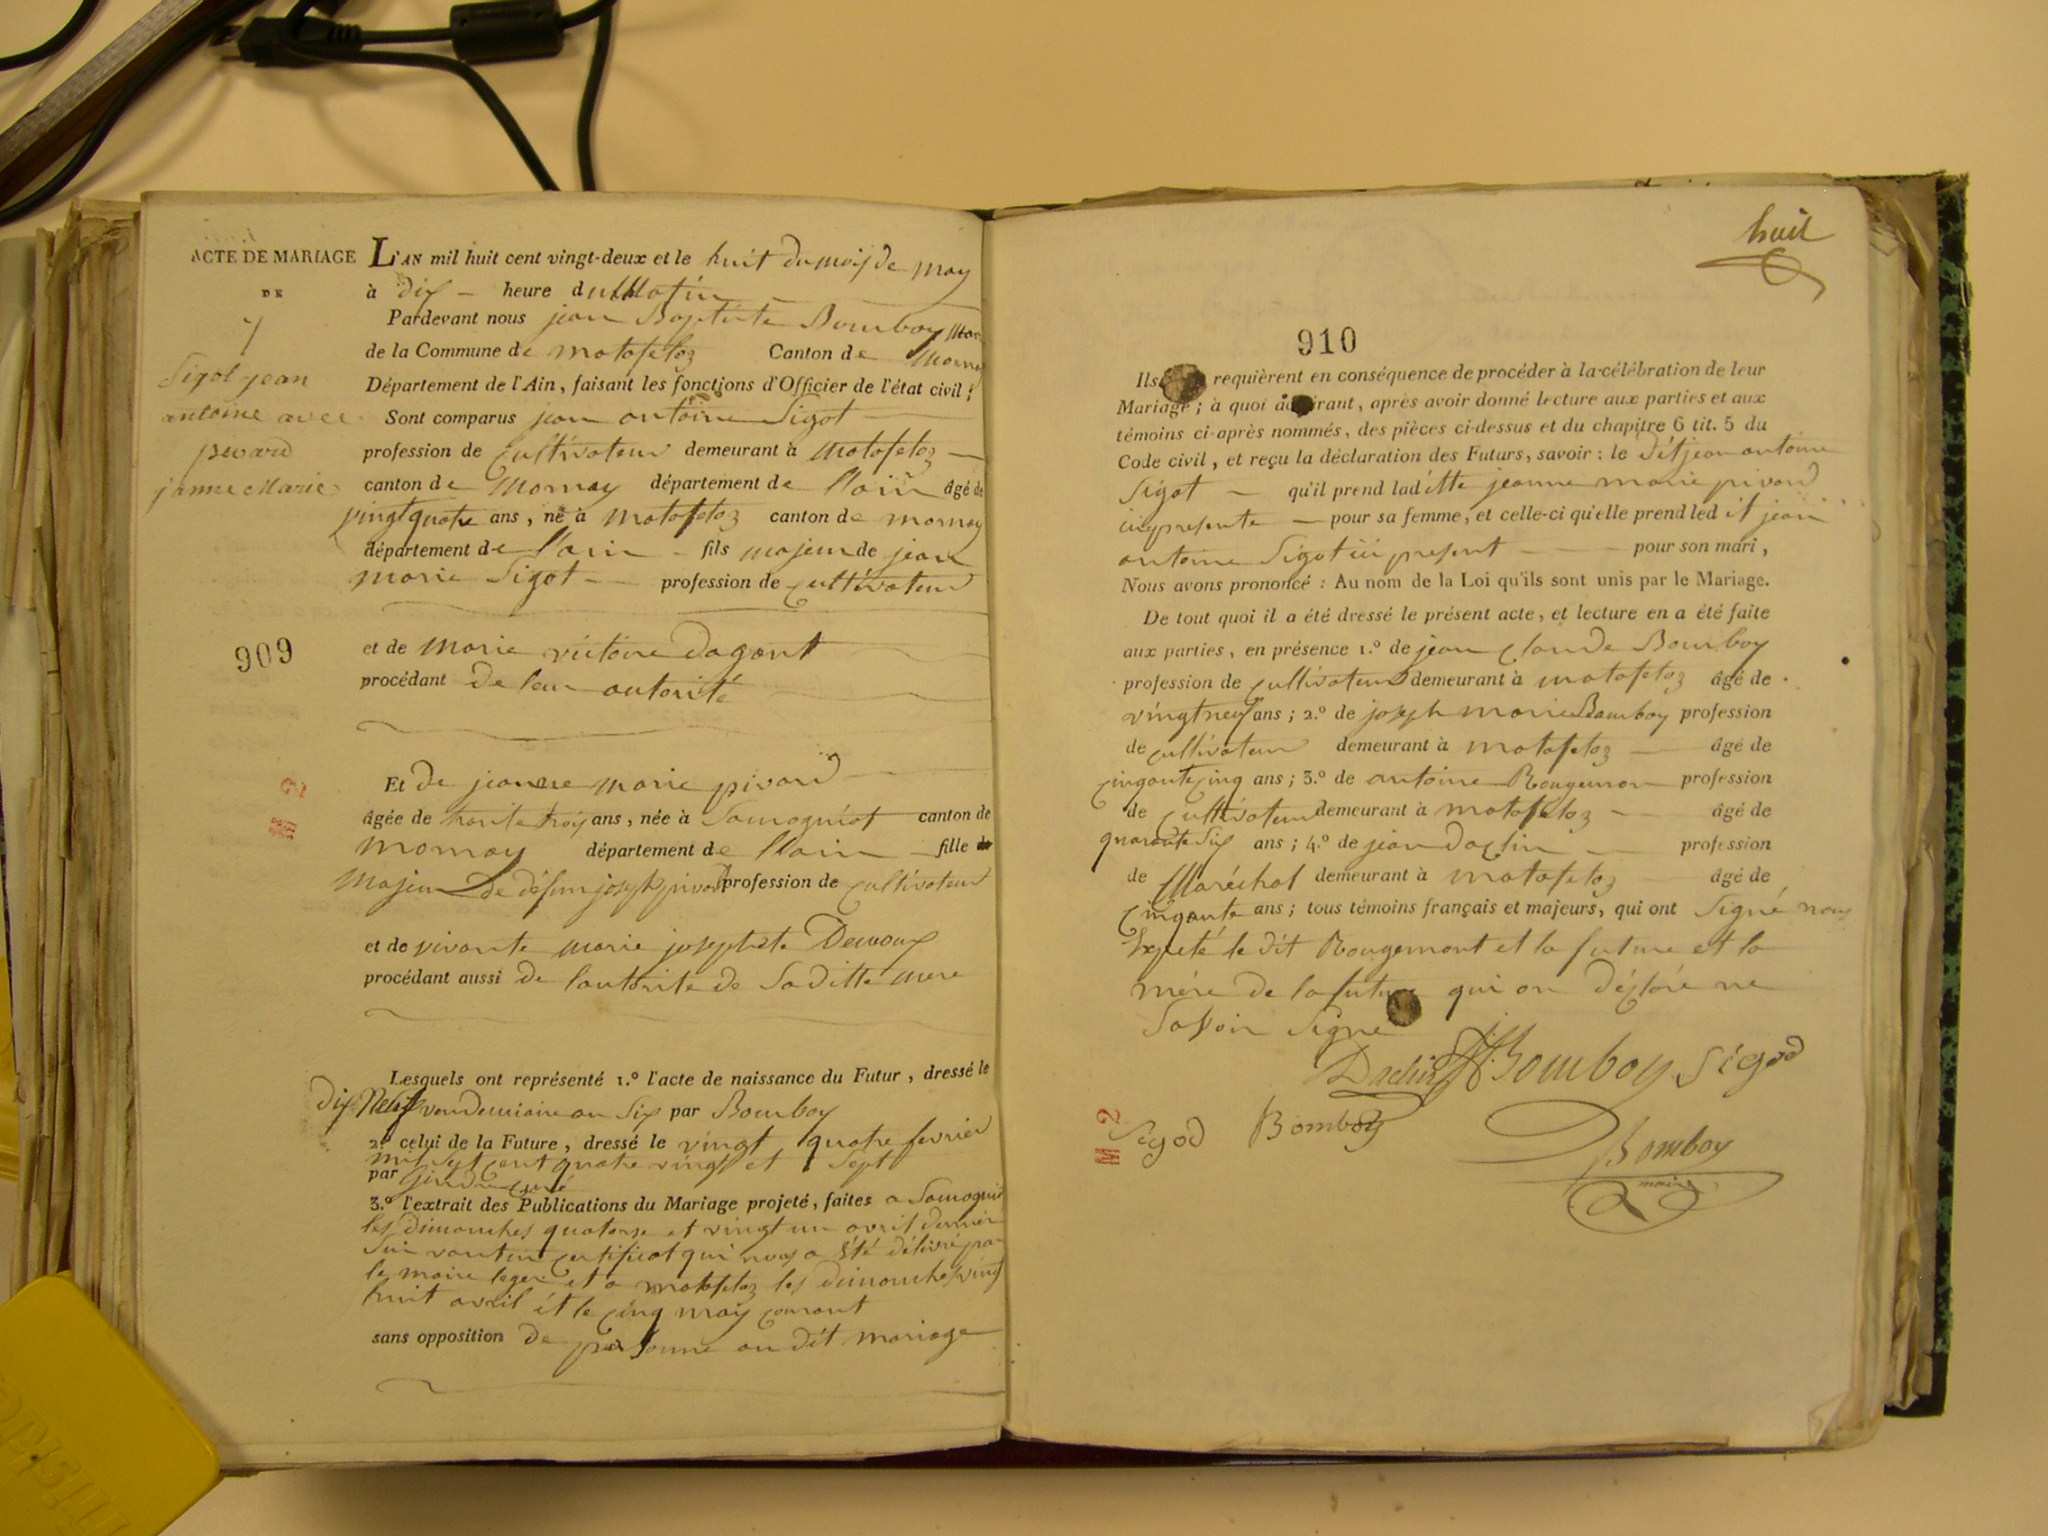 ACTE DE MARIAGE
DE
Sigot jean
antoine avec
pivard
janne Marie
L'AN mil huit cent vingt-deux et le huit du mois de may
à dix heure du Matin
Pardevant nous jean Baptiste Bomboy
de la Commune de matafeloz Canton de Mornay
Département de l'Ain, faisant les fonctions d'Officier de l'état civil;
Sont comparus jean antoine Sigot
profession de cultivateur demeurant à Matafeloz
canton de Mornay département de l'lain âgé de
vingt quatre ans, né à Matafeloz canton de mornay
département de l'lain fils majeur de jean
marie Sigot profession de cultivateur
909
et de marie victoire dagant
procédant de leur autorité
Et de jeanne marie pivard
âgée de trante trois ans, née à Samogniat canton de
mornay département de l'lain fille de
majeur De défun joseph pivard profession de cultivateur
et de vivante marie josephete
procédant aussi de lautorite de Saditte mere
Lesquels ont représenté 1.º l'acte de naissance du Futur, dressé le
dix Neuf vendemiaire an Six par Bomboy
2.º celui de la Future, dressé le vingt quatre fevrier
mil sept cent quatre vingt et sept
par curé
3.º l'extrait des Publications du Mariage projeté, faites a Samogniat
les dimanches quatorse et vingt un avril dernier
Sui vant un certificat qui nous a été délivré par
le maire leger et a matafelaz les dimanches vingt
huit avril ét le cinq may courant
sans opposition de personne au dit mariage
M 2
huit
910
Ils requièrent en conséquence de procéder à la célébration de leur
Mariage; à quoi adhérant, après avoir donné lecture aux parties et aux
témoins ci-après nommés, des pièces ci-dessus et du chapitre 6 tit. 5 du
Code civil, et reçu la déclaration des Futurs, savoir: le dit jean antoine
Sigot qu'il prend ladette jeanne marie pivard
icy presente pour sa femme, et celle-ci qu'elle prend led it jean
antoine Sigot ici present pour son mari,
Nous avons prononcé: Au nom de la Loi qu'ils sont unis par le Mariage.
De tout quoi il a été dressé le présent acte, et lecture en a été faite
aux parties, en présence 1.º de jean claude Bomboy
profession de cultivateur demeurant à matafeloz âgé de
vingt neuf ans; 2.º de joseph marie Bomboy profession
de cultivateur demeurant à matafeloz âgé de
cinqante cinq ans; 3.º de antoine Rougemon profession
de cultivateur demeurant à matafeloz âgé de
quarante Six ans; 4.º de jean daclin profession
de Maréchal demeurant à matafeloz âgé de
cinqante ans; tous témoins français et majeurs, qui ont Signé nous
Expté le dit Rougemont et la future et la
mère de la future qui on déclaré ne
Savoir Signe
Daclin Bomboy Sigod
Sigod Bomboy
Bomboy
maire
M 2